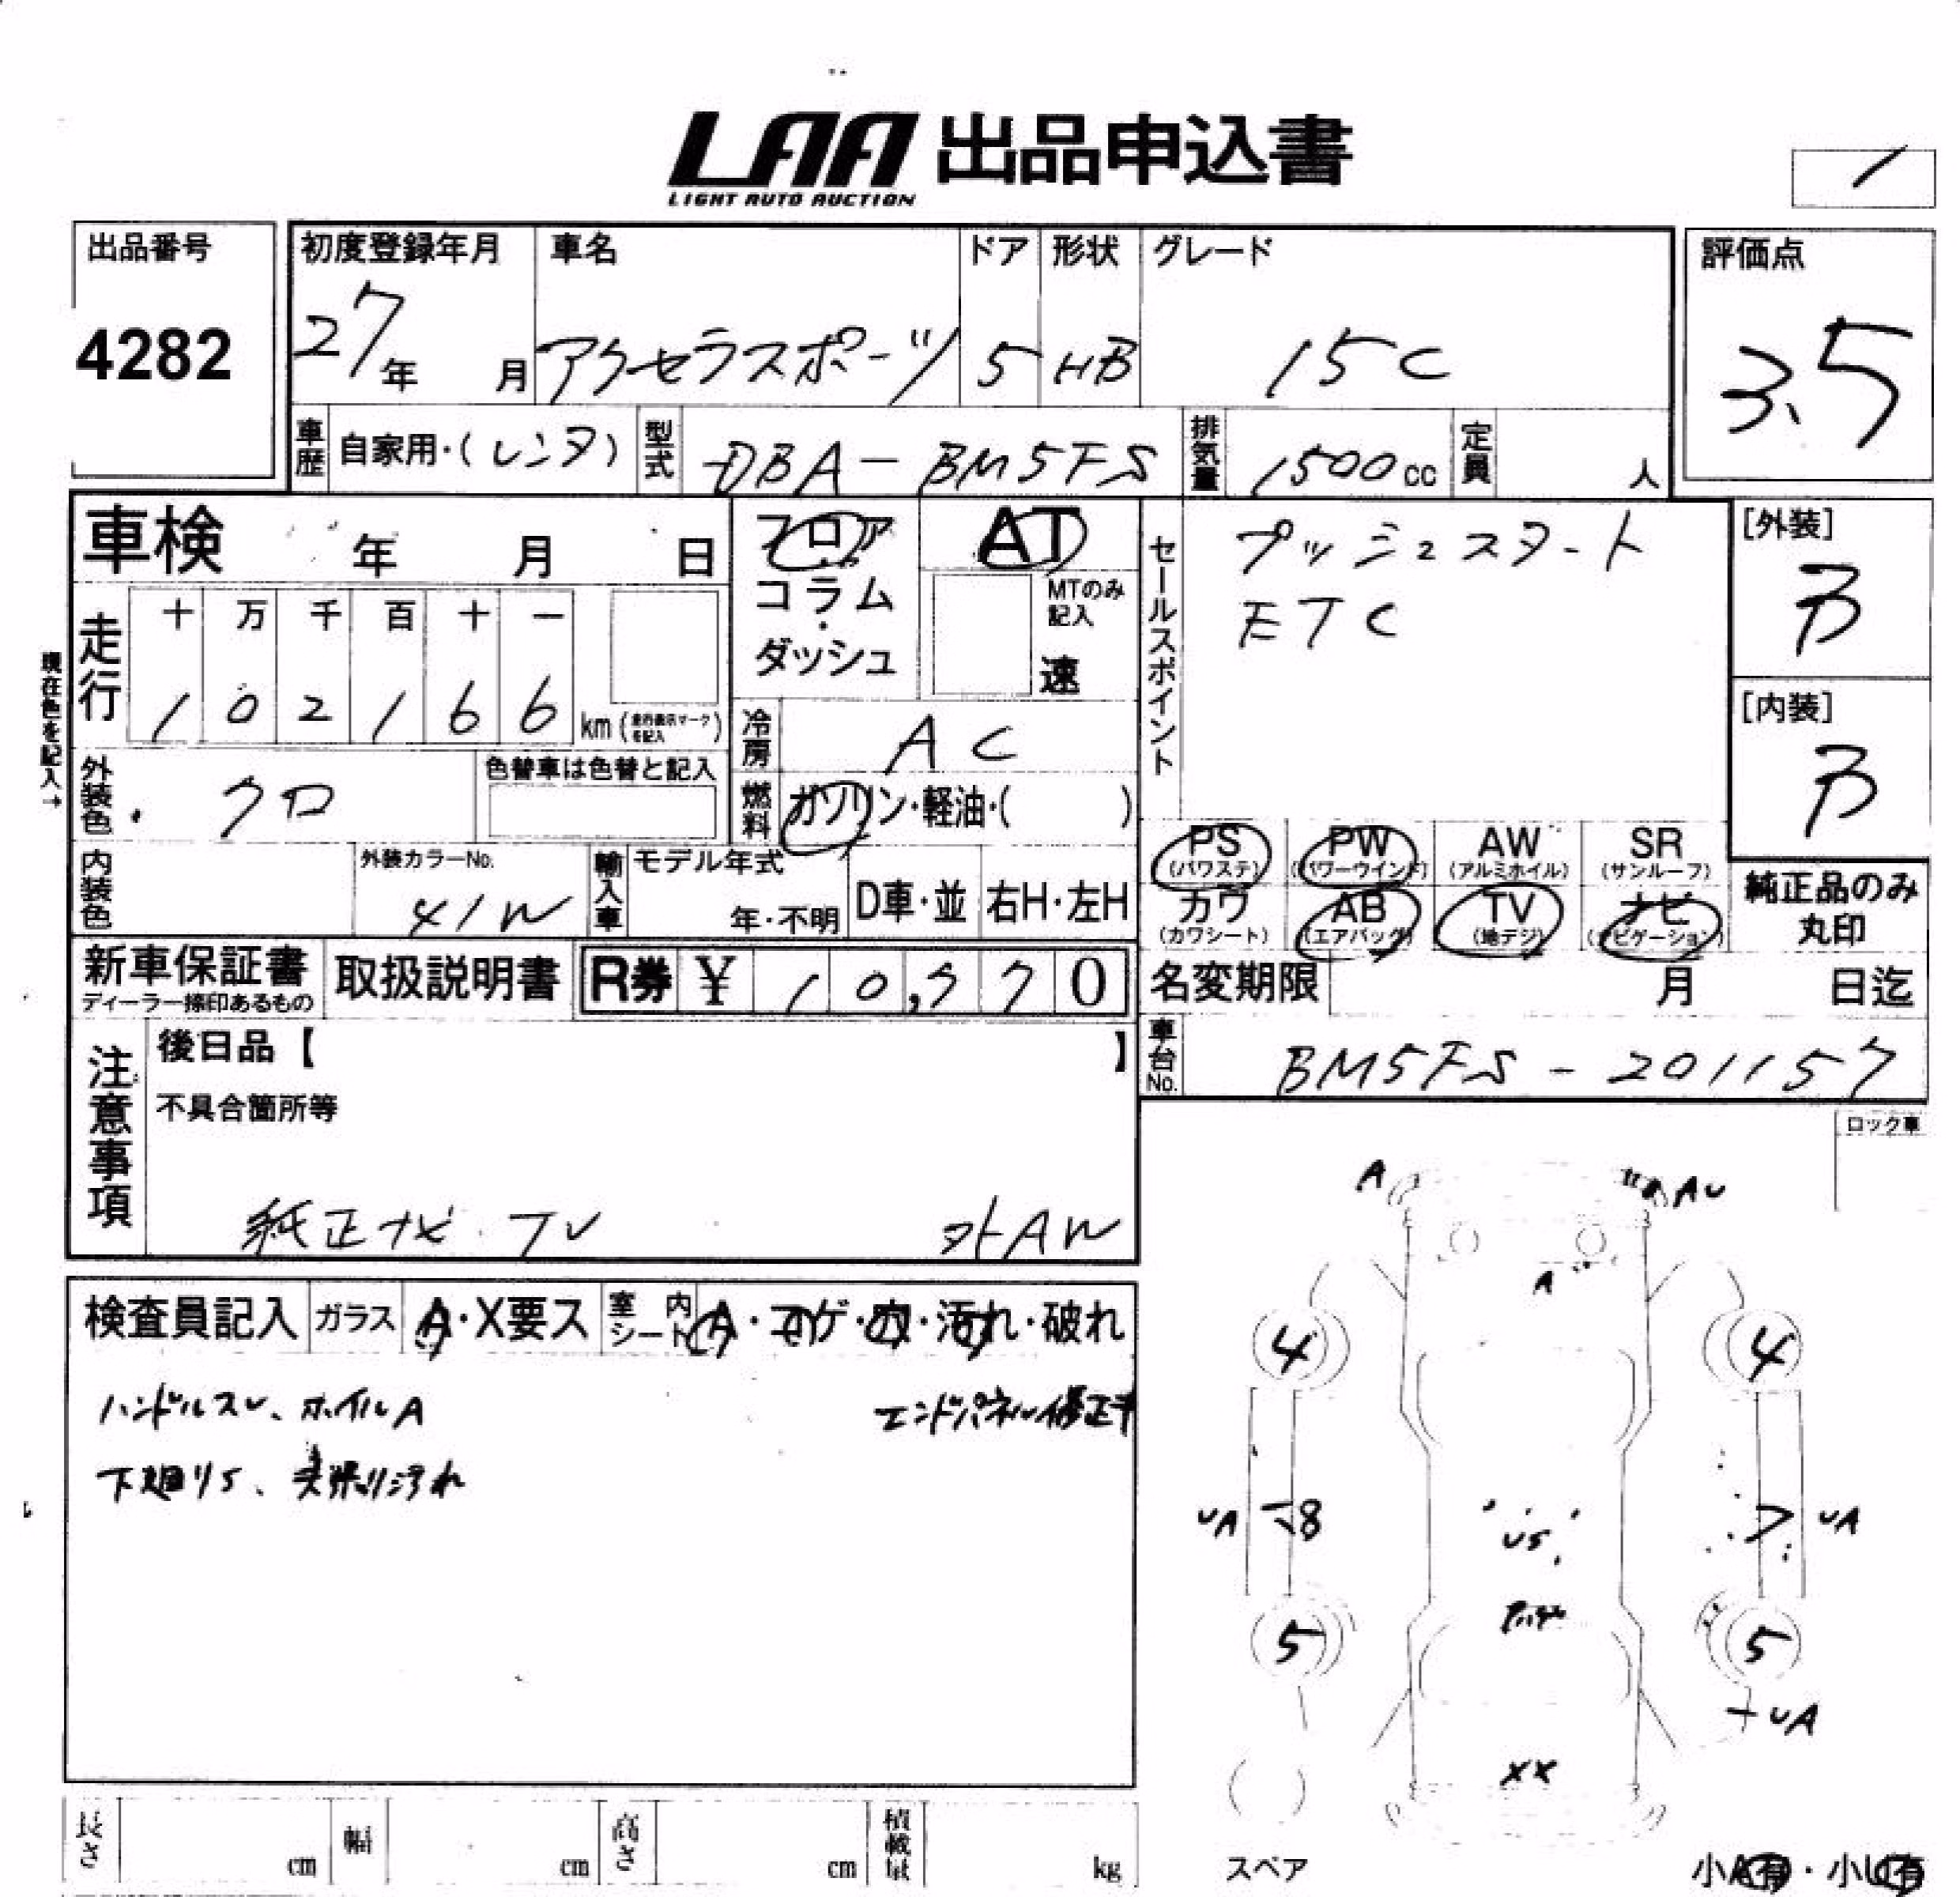 LAA 出品申込書
LIGHT AUTO AUCTION
出品番号
4282
初度登録年月
27年 月
車名
アクセラスポーツ
ドア
5
形状
HB
グレード
15C
評価点
3.5
車歴 自家用・(レンタ)
型式 DBA-BM5FS
排気量 1500cc
定員 人
車検 年 月 日
現在色を記入→
走行
十 万 千 百 十 一
1 0 2 1 6 6 km (走行表示マークを記入)
フロア
コラム
・
ダッシュ
AT
MTのみ記入
速
冷房 AC
燃料 ガソリン・軽油・( )
外装色 クロ
色替車は色替と記入
内装色
外装カラーNo.
41W
輸入車
モデル年式
年・不明
D車・並
右H・左H
セールスポイント
プッシュスタート
ETC
[外装]
B
[内装]
B
PS (パワステ)
PW (パワーウインド)
AW (アルミホイル)
SR (サンルーフ)
カワ (カワシート)
AB (エアバッグ)
TV (地デジ)
ナビ (ナビゲーション)
純正品のみ
丸印
新車保証書
ディーラー捺印あるもの
取扱説明書
R券 ¥ 10,770
名変期限 月 日迄
車台No. BM5FS-201157
注意事項
後日品【 】
不具合箇所等
純正ナビ・TV 外AW
ロック車
検査員記入
ガラス A・X要ス
室内シート A・コゲ・穴・汚れ・破れ
ハンドルスレ、ホイルA
エンドパネル修正
下廻りS、天張り汚れ
A
AU
A
4
4
UA
8
US
UA
5
5
UA
XX
スペア
小A有・小U有
長さ cm
幅 cm
高さ cm
積載量 kg